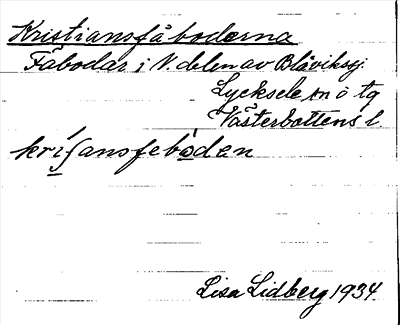 Kristiansfäboderna
Fäbodar i N. delen av Blåviksj.
Lycksele sn o tg
Västerbottens l.
kríʃansfebòden
Lisa Lidberg 1934